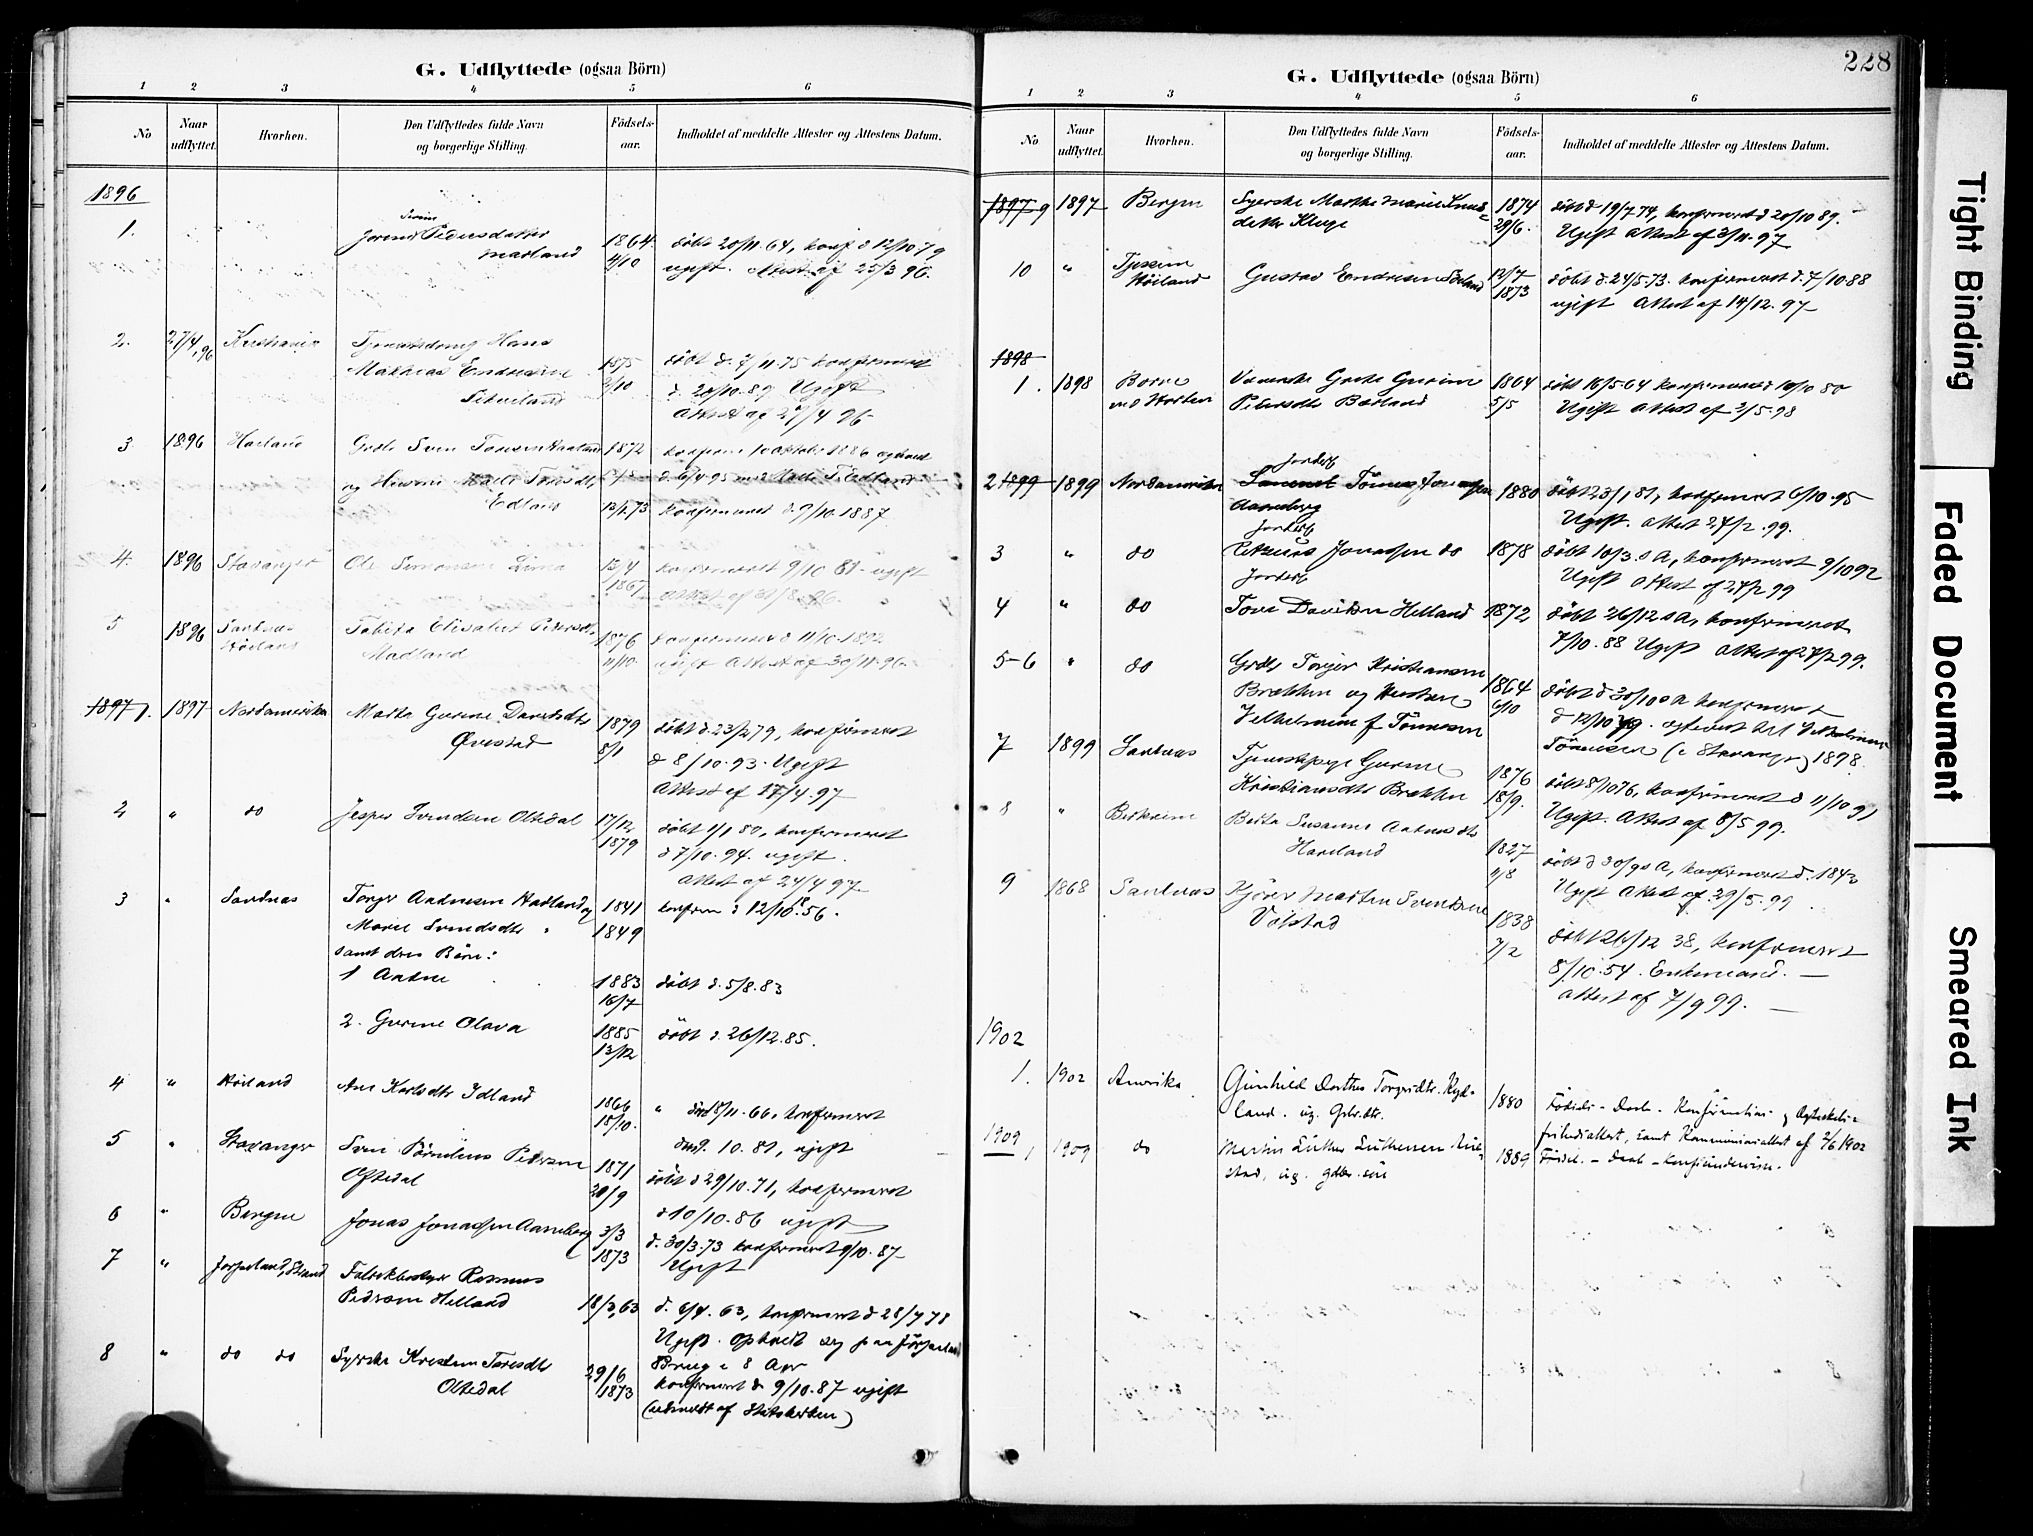 G. Udflyttede (ogsaa Börn)
1 2 3 4 5 6
No
Naar udflyttet.
Hvorhen.
Den Udflyttedes fulde Navn
og borgerlige Stilling.
Födsels-
aar.
Indholdet af meddelte Attester og Attestens Datum.
1896
1.
Pedersdatter
Madland
1864
4/10
döbt 20/11.64, konf d 12/10 79
ugift. Attest af 25/3 96.
2.
27/4,96
Kristiania
Hans
Mathias Endresen
1875
2/10
döbt d. 7/11.75 konfirmeret
d. 20/10.89 Ugift
Attest af 27/4 96
3
1896
Grdb. Sven
og
Edland
1872
konfirm.
konfirmeret d. 9/10.1887
4.
1896
Stavanger
Ole Simonsen Lima
12/4
1867
konfirmeret 9/10 81 ugift
5
1896
Sandnes
Höiland
Tabita Elisabet Pedersdtr
Madland
1876
11/10
konfirmeret d 11/10.1892
ugift Attest af 30/11.96.
1897 1.
1897
Nordamerika
Marta Gurine Davidsdtr
Övestad
1879
8/1
döbt d. 23/2 79, konfirmeret
d 8/10.93. Ugift
Attest af 17/4.97
2
"
do
Jesper Svendsen Oltedal
17/12
1879
döbt 1/1 80, konfirmeret
d 7/10.94. ugift.
Attest af 24/4 97
3
"
Sandnes
Torger Andersen Madland og
Marie Svendsdtr "
samt dres Börn:
1841
1849
konfirm d 12/10.56.
1 Andrea
1883
16/7
döbt d. 5/8.83
2. Gurine Olava
1885
13/12
döbt d. 26/12.85.
4
"
Höiland
Ane Karlsdtr Idland
1866
18/10.
" 8/11.66, konfirmeret
10.81, ugift
5
"
Stavanger
Sven Pedersen
Oftedal
1871
20/9
döbt d 29/10.71, konfirmeret
d 10/10.86 ugift
6
"
Bergen
Jonas Jonassen Aaneberg
3/3
1873
d. 30/3.73 konfirmeret 9/10.87
Ugift
7
"
Jörpeland, Strand
Fabrikbestyr Rasmus
Pedersen Helland
18/3,63
d. 6/4. 63, konfirmeret d 28/4 78
Ugift. Opholdt sig paa Jörpeland
Brug i 8 Aar
8
"
do do
Syerske Kristine Taresdtr
Oltedal
29/6
1873
konfirmeret d. 9/10.87 ugift
(udmeldt af Statskirken)
228
G. Udflyttede (ogsaa Börn)
1 2 3 4 5 6
No
Naar udflyttet.
Hvorhen.
Den Udflyttedes fulde Navn
og borgerlige Stilling.
Födsels-
aar.
Indholdet af meddelte Attester og Attestens Datum.
1897 9
1897
Bergen
Syerske Marthe Marie Knuds-
detter Kluge
1874
29/6.
döbt d 19/7 74, konfirmeret d 20/10 89.
Ugift Attest af 3/11.97
10
"
Höiland
Gustav Endresen
12/7
1873
döbt d. 24/5.73. konfirmeret d. 7/10.88
ugift Attest af 14/12.97
1898
1.
1898
Borre
ved Horten
Væverske Grete Gurine
Petersdtr
1864
5/5
döbt 16/5.64 konfirmeret d 10/10 80
Ugift Attest af 2/5.98
2 1899
1899
Nordamerika
Jordarb.
Tönnes Jonassen
Aaneberg
1880
döbt 23/1 81, konfirmeret 6/10.95
Ugift. Attest 24/2.99.
3
"
do
Jordarb.
Jonassen do
1878
döbt 10/3. s A, konfirmeret 9/10 92
Ugift Attest af 24/2 99
4
"
do
Jordarb.
Tore Davidsen Helland
1872
döbt 26/12 s A, konfirmeret
7/10. 88 Ugift Attest af 24/2 99.
5-6
"
do
Grdb. Torger Kristiansen
Brækken og Hustru
Vilhelmine f. Tönnesen
1864
6/10
döbt d 30/10 s A konfirmeret
d 12/10 79. egteviet Vilhelmine
Tönnesen (i Stavanger) 1898.
7
1899
Sandnes
Tjenestepige Gurine
Kristiansdtr Brækken
1876
18/9.
döbt 8/10 76, konfirmeret d 11/10 91
Ugift. Attest af 8/5 99.
8
"
Berta Susanne
Haaland
1827
4/8
döbt d 30/9 s A, konfirmeret d. 1842
Ugift Attest af 29/5.99.
9
1868
Sandnes
Martin Svendsen
Völstad
1838
7/2
döbt 26/12 38, konfirmeret
8/10.54. Enkemand. —
Attest af 7/9 99. —
1902
1.
1902
Amerika
Gunhild Dorthea Torgersdtr. Kyd-
land. ug. Gbr.dtr.
1880
Födsels- Daab- Konfirmations- og Ægteskabs-
friheds attest, samt Kommunionattest af 2/6 1902
1909
1
1909
do
Martin Luther
stad, ug. gdbr. sön
1889
Födsel. – Daab –
Tight Binding
Faded Document
Smeared Ink